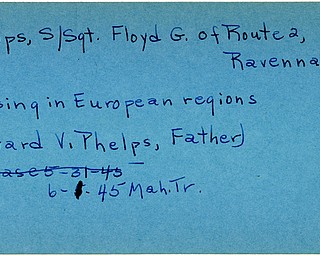 ps, S/Sgt. Floyd G. of Route 2,
Ravenna
sing in European regions
ard V. Phelps, Father)
ase 5-31-45
6- -45 Mah. Tr.